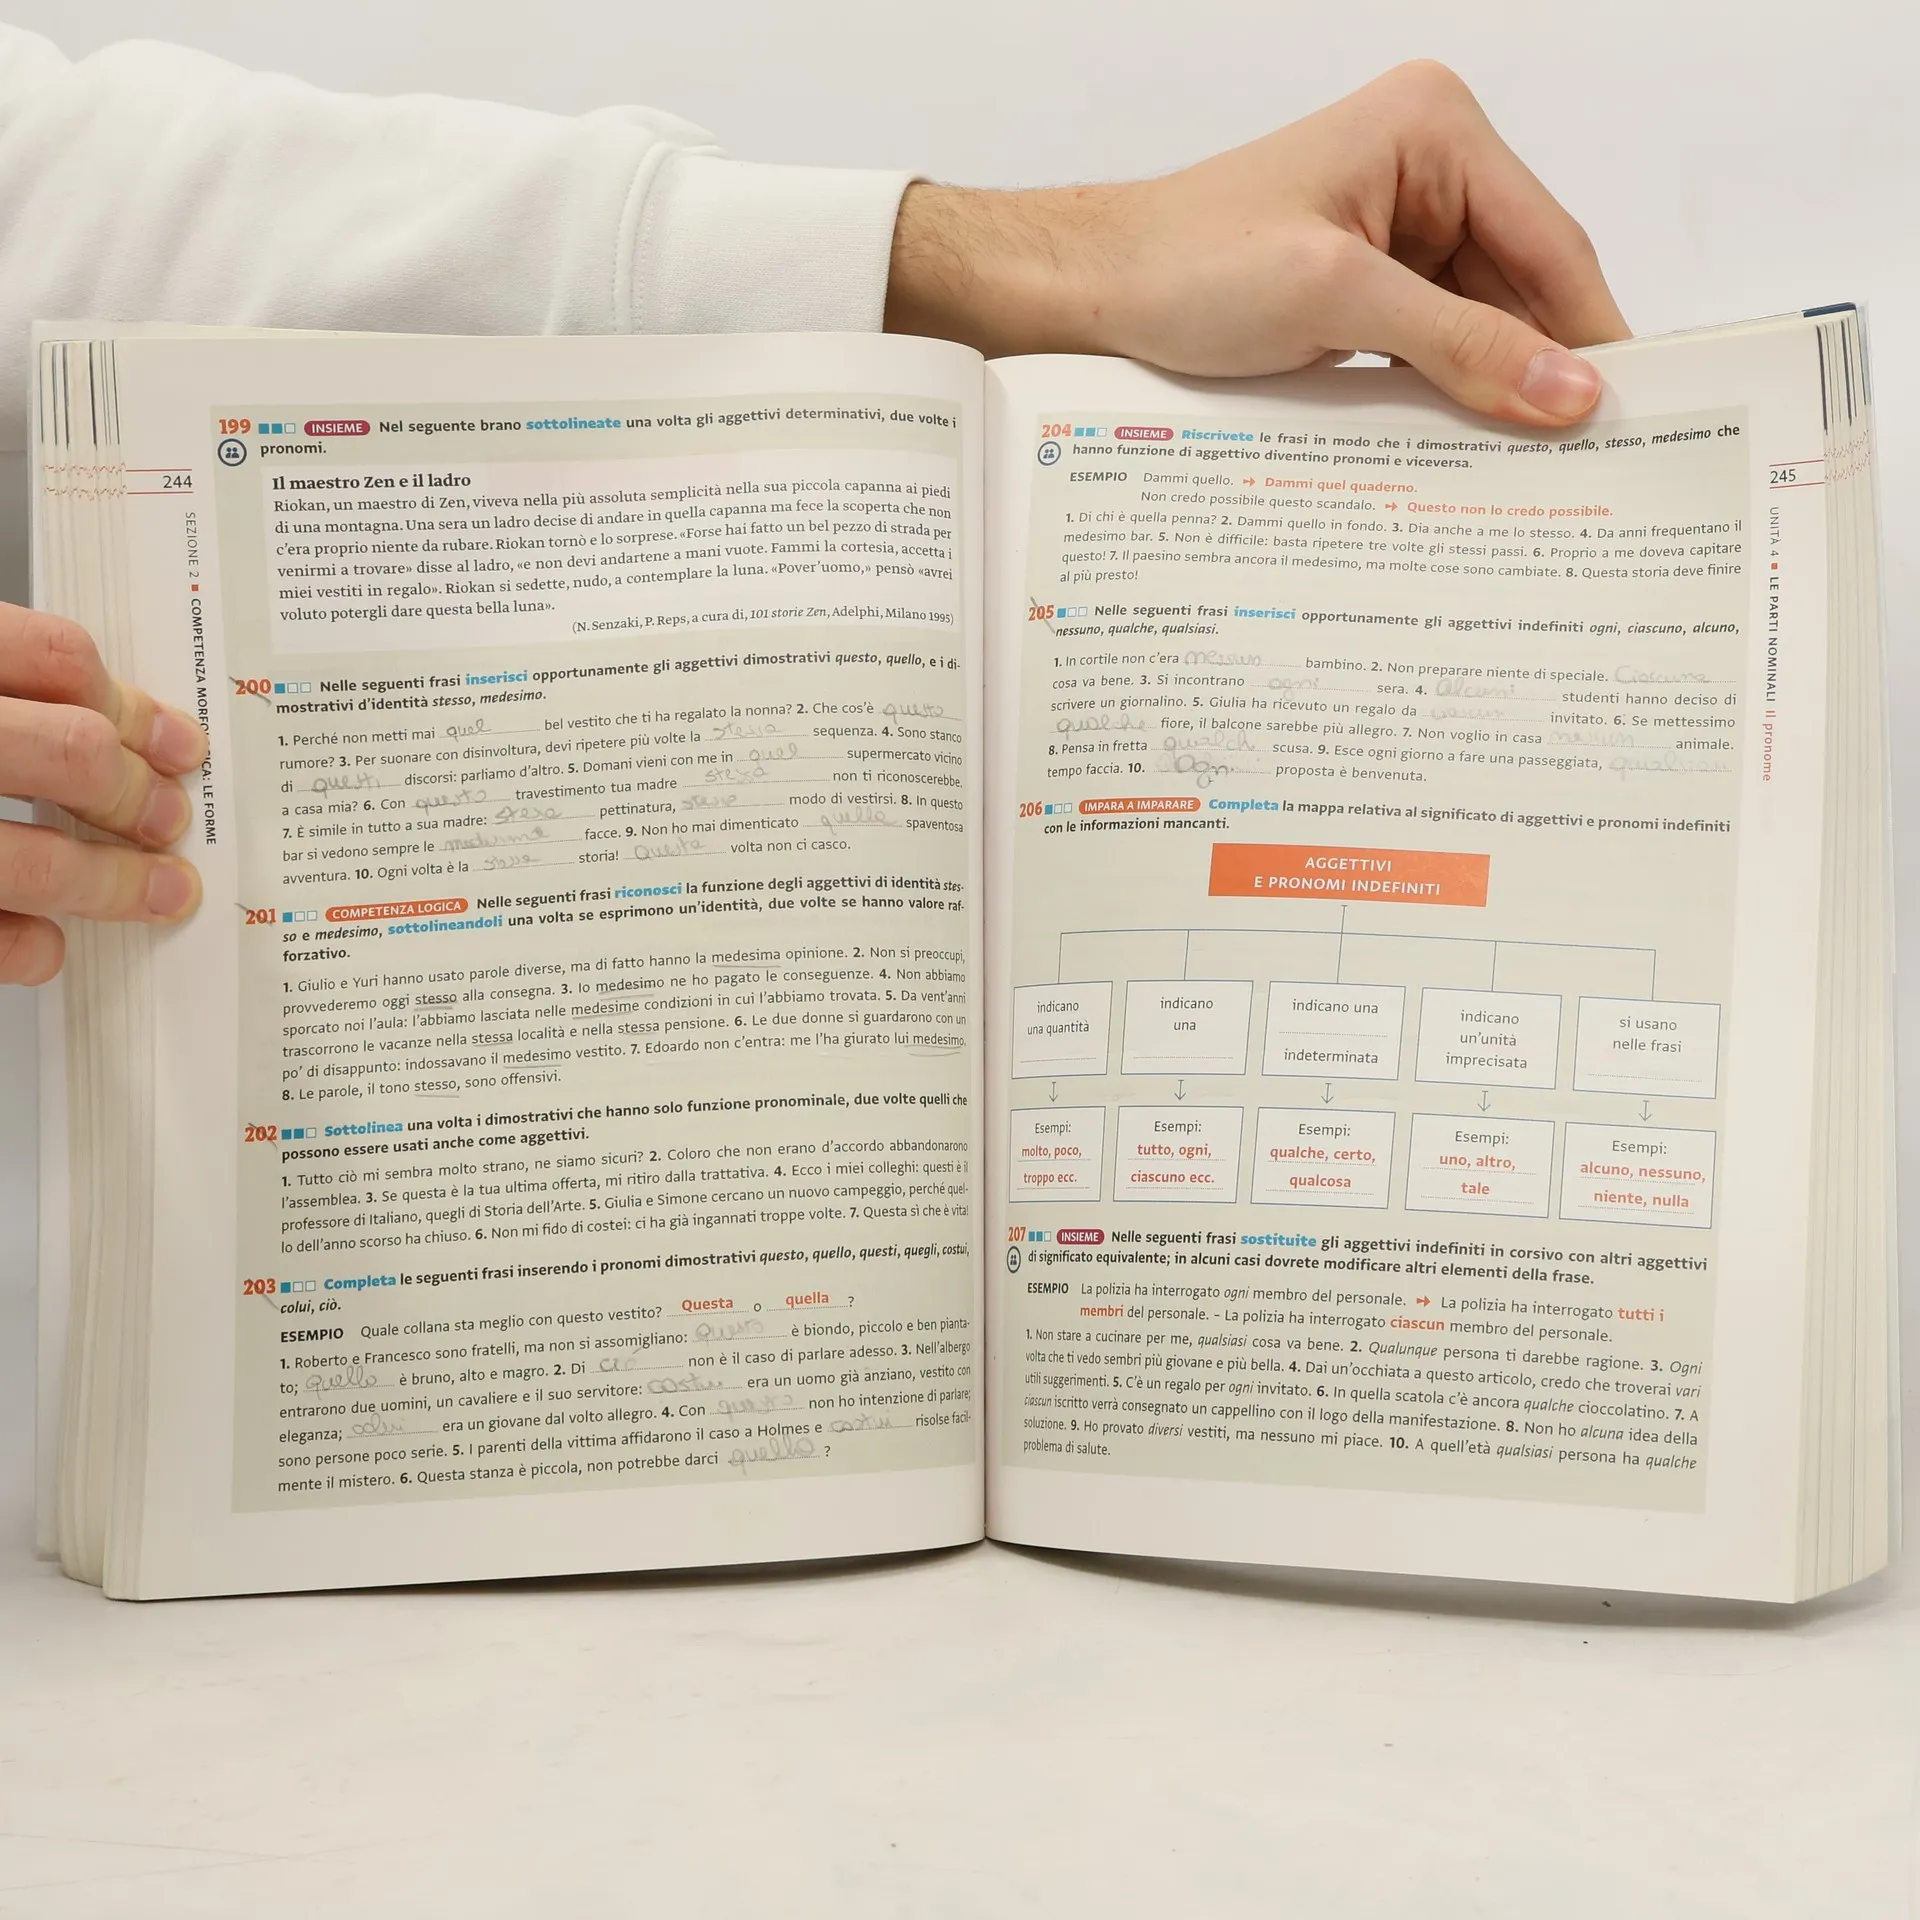 244
SEZIONE 2 ■ COMPETENZA MORFOLOGICA: LE FORME
199 INSIEME Nel seguente brano sottolineate una volta gli aggettivi determinativi, due volte i
pronomi.
Il maestro Zen e il ladro
Riokan, un maestro di Zen, viveva nella più assoluta semplicità nella sua piccola capanna ai piedi
di una montagna. Una sera un ladro decise di andare in quella capanna ma fece la scoperta che non
c'era proprio niente da rubare. Riokan tornò e lo sorprese. «Forse hai fatto un bel pezzo di strada per
venirmi a trovare» disse al ladro, «e non devi andartene a mani vuote. Fammi la cortesia, accetta i
miei vestiti in regalo». Riokan si sedette, nudo, a contemplare la luna. «Pover'uomo,» pensò «avrei
voluto potergli dare questa bella luna».
(N. Senzaki, P. Reps, a cura di, 101 storie Zen, Adelphi, Milano 1995)
200 Nelle seguenti frasi inserisci opportunamente gli aggettivi dimostrativi questo, quello, e i di-
mostrativi d'identità stesso, medesimo.
1. Perché non metti mai quel bel vestito che ti ha regalato la nonna? 2. Che cos'è questo
rumore? 3. Per suonare con disinvoltura, devi ripetere più volte la stessa sequenza. 4. Sono stanco
di questi discorsi: parliamo d'altro. 5. Domani vieni con me in quel supermercato vicino
a casa mia? 6. Con questo travestimento tua madre stexa non ti riconoscerebbe.
7. È simile in tutto a sua madre: stexa pettinatura, modo di vestirsi. 8. In questo
bar si vedono sempre le medesime facce. 9. Non ho mai dimenticato quella spaventosa
avventura. 10. Ogni volta è la stessa storia! Questa volta non ci casco.
201 COMPETENZA LOGICA Nelle seguenti frasi riconosci la funzione degli aggettivi di identità stes-
so e medesimo, sottolineandoli una volta se esprimono un'identità, due volte se hanno valore raf-
forzativo.
1. Giulio e Yuri hanno usato parole diverse, ma di fatto hanno la medesima opinione. 2. Non si preoccupi,
provvederemo oggi stesso alla consegna. 3. Io medesimo ne ho pagato le conseguenze. 4. Non abbiamo
sporcato noi l'aula: l'abbiamo lasciata nelle medesime condizioni in cui l'abbiamo trovata. 5. Da vent'anni
trascorrono le vacanze nella stessa località e nella stessa pensione. 6. Le due donne si guardarono con un
po' di disappunto: indossavano il medesimo vestito. 7. Edoardo non c'entra: me l'ha giurato lui medesimo.
8. Le parole, il tono stesso, sono offensivi.
202 Sottolinea una volta i dimostrativi che hanno solo funzione pronominale, due volte quelli che
possono essere usati anche come aggettivi.
1. Tutto ciò mi sembra molto strano, ne siamo sicuri? 2. Coloro che non erano d'accordo abbandonarono
l'assemblea. 3. Se questa è la tua ultima offerta, mi ritiro dalla trattativa. 4. Ecco i miei colleghi: questi è il
professore di Italiano, quegli di Storia dell'Arte. 5. Giulia e Simone cercano un nuovo campeggio, perché quel-
lo dell'anno scorso ha chiuso. 6. Non mi fido di costei: ci ha già ingannati troppe volte. 7. Questa sì che è vita!
203 Completa le seguenti frasi inserendo i pronomi dimostrativi questo, quello, questi, quegli, costui,
colui, ciò.
ESEMPIO Quale collana sta meglio con questo vestito? Questa o quella ?
1. Roberto e Francesco sono fratelli, ma non si assomigliano: Questo è biondo, piccolo e ben pianta-
to; Quello è bruno, alto e magro. 2. Di ciò non è il caso di parlare adesso. 3. Nell'albergo
entrarono due uomini, un cavaliere e il suo servitore: costui era un uomo già anziano, vestito con
eleganza; colui era un giovane dal volto allegro. 4. Con questo non ho intenzione di parlare;
sono persone poco serie. 5. I parenti della vittima affidarono il caso a Holmes e costui risolse facil-
mente il mistero. 6. Questa stanza è piccola, non potrebbe darci quella ?
204 INSIEME Riscrivete le frasi in modo che i dimostrativi questo, quello, stesso, medesimo che
hanno funzione di aggettivo diventino pronomi e viceversa.
ESEMPIO Dammi quello. ➻ Dammi quel quaderno.
Non credo possibile questo scandalo. ➻ Questo non lo credo possibile.
1. Di chi è quella penna? 2. Dammi quello in fondo. 3. Dia anche a me lo stesso. 4. Da anni frequentano il
medesimo bar. 5. Non è difficile: basta ripetere tre volte gli stessi passi. 6. Proprio a me doveva capitare
questo! 7. Il paesino sembra ancora il medesimo, ma molte cose sono cambiate. 8. Questa storia deve finire
al più presto!
205 Nelle seguenti frasi inserisci opportunamente gli aggettivi indefiniti ogni, ciascuno, alcuno,
nessuno, qualche, qualsiasi.
1. In cortile non c'era nessun bambino. 2. Non preparare niente di speciale. Ciascuna
cosa va bene. 3. Si incontrano ogni sera. 4. Alcuni studenti hanno deciso di
scrivere un giornalino. 5. Giulia ha ricevuto un regalo da invitato. 6. Se mettessimo
qualche fiore, il balcone sarebbe più allegro. 7. Non voglio in casa nessun animale.
8. Pensa in fretta qualch scusa. 9. Esce ogni giorno a fare una passeggiata, qualsiasi
tempo faccia. 10. Ogni proposta è benvenuta.
206 IMPARA A IMPARARE Completa la mappa relativa al significato di aggettivi e pronomi indefiniti
con le informazioni mancanti.
AGGETTIVI
E PRONOMI INDEFINITI
indicano
una quantità
indicano
una
indicano una
indeterminata
indicano
un'unità
imprecisata
si usano
nelle frasi
Esempi:
molto, poco,
troppo ecc.
Esempi:
tutto, ogni,
ciascuno ecc.
Esempi:
qualche, certo,
qualcosa
Esempi:
uno, altro,
tale
Esempi:
alcuno, nessuno,
niente, nulla
207 INSIEME Nelle seguenti frasi sostituite gli aggettivi indefiniti in corsivo con altri aggettivi
di significato equivalente; in alcuni casi dovrete modificare altri elementi della frase.
ESEMPIO La polizia ha interrogato ogni membro del personale. ➻ La polizia ha interrogato tutti i
membri del personale. – La polizia ha interrogato ciascun membro del personale.
1. Non stare a cucinare per me, qualsiasi cosa va bene. 2. Qualunque persona ti darebbe ragione. 3. Ogni
volta che ti vedo sembri più giovane e più bella. 4. Dai un'occhiata a questo articolo, credo che troverai vari
utili suggerimenti. 5. C'è un regalo per ogni invitato. 6. In quella scatola c'è ancora qualche cioccolatino. 7. A
ciascun iscritto verrà consegnato un cappellino con il logo della manifestazione. 8. Non ho alcuna idea della
soluzione. 9. Ho provato diversi vestiti, ma nessuno mi piace. 10. A quell'età qualsiasi persona ha qualche
problema di salute.
245
UNITÀ 4 ■ LE PARTI NOMINALI Il pronome